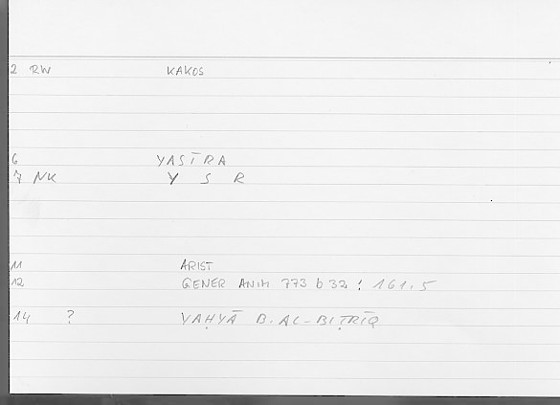 2 RW KAKOS
6 YASĪRA
7 NK Y S R
11 ARIST
12 GENER ANIM 773 b 32 : 161,5
14 ? YAḤYĀ B. AL-BIṬRĪQ